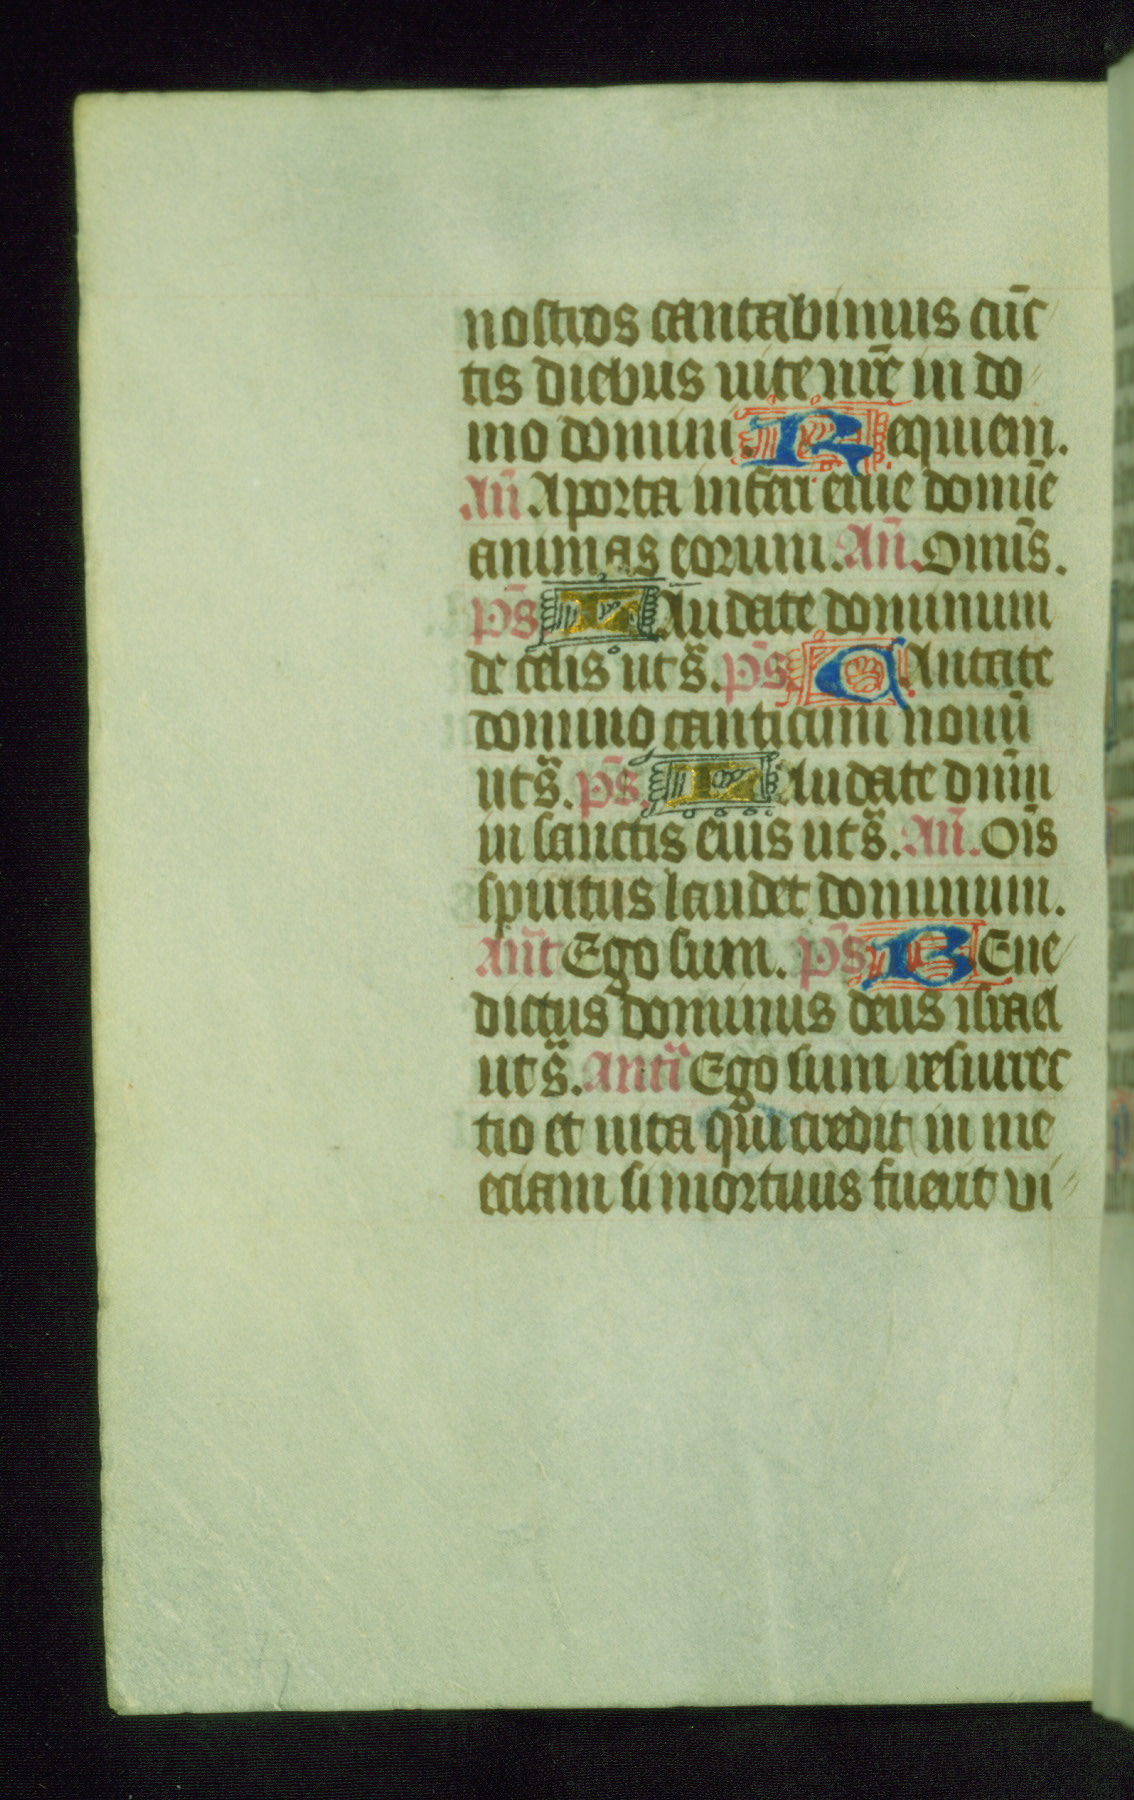 nostros cantabimus cūc
tis diebus uite nr̄e in do
mo domini. Requiem.
An̄ A porta inferi erue domīe
animas eorum. An̄. Omīs.
p̄s Laudate dominum
de celis ut s̄. p̄s Cantate
domino canticum nouū
ut s̄. p̄s Laudate dn̄m
in sanctis eius ut s̄. An̄. Oīs
spiritus laudet dominum.
An̄t Ego sum. p̄s Bene
dictus dominus deus israel
ut s̄. Antī Ego sum resurrec
tio et uita qui credit in me
eciam si mortuus fuerit vi